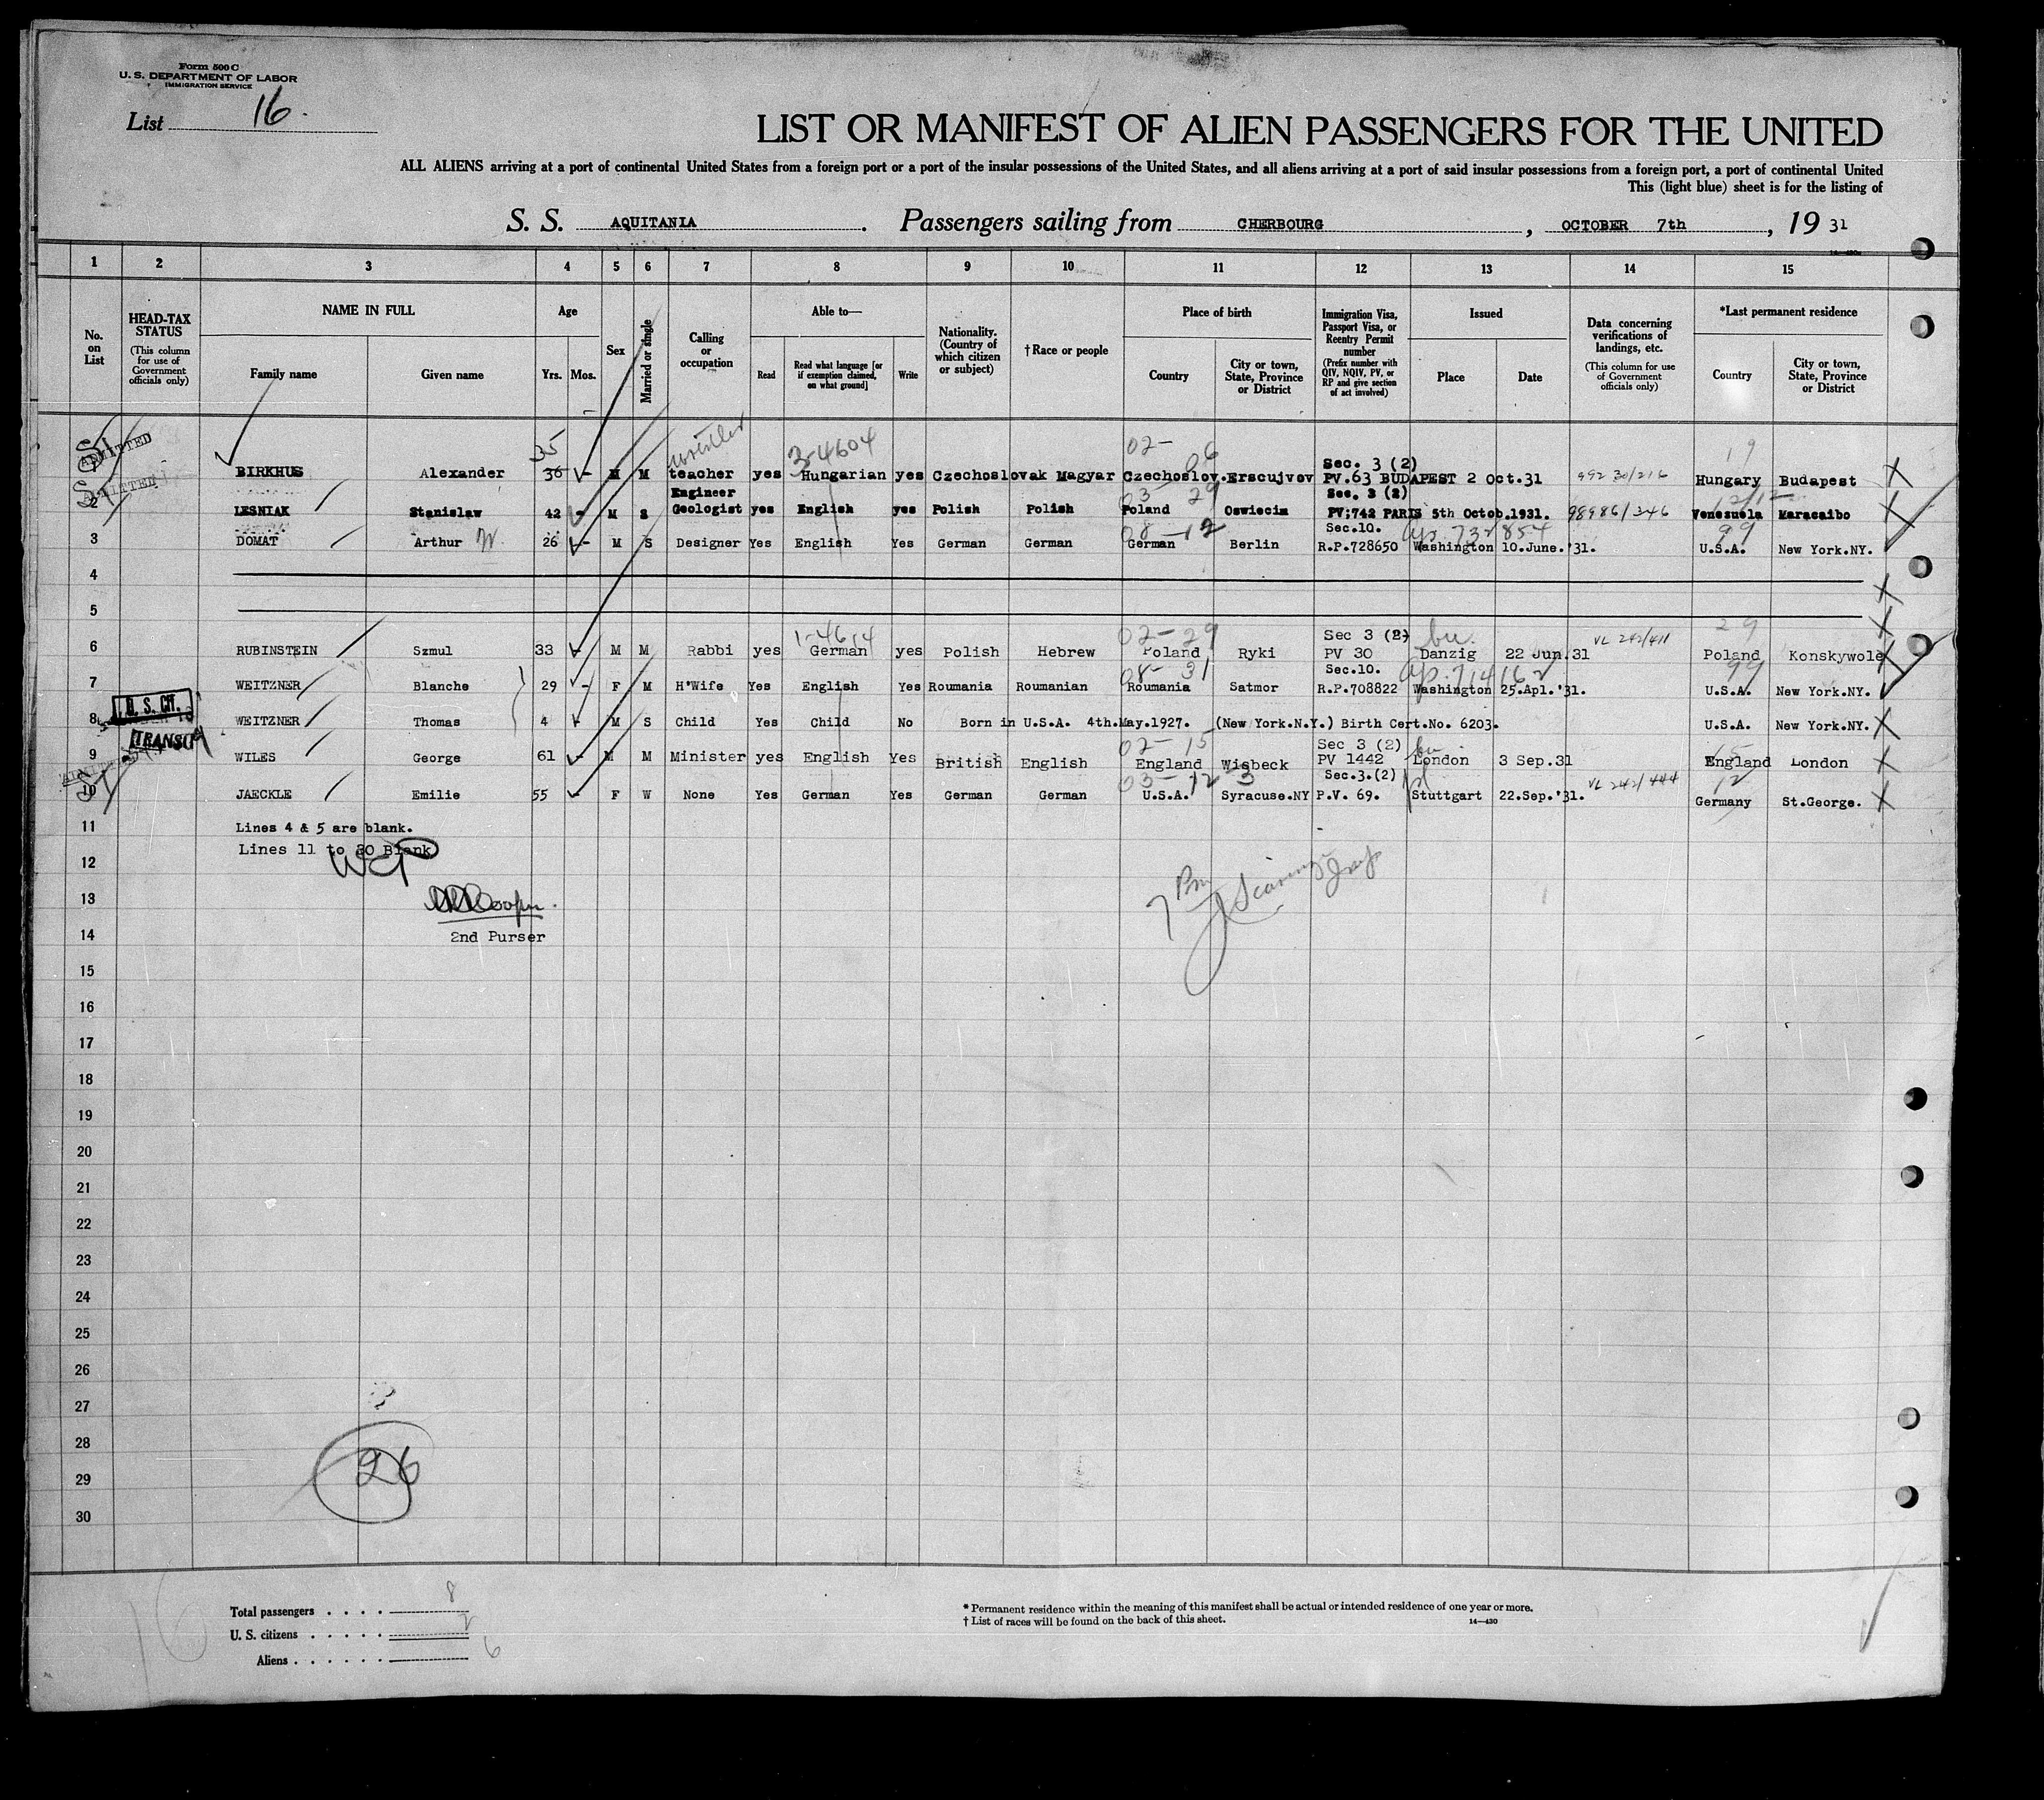 Form 500 C
U. S. DEPARTMENT OF LABOR
IMMIGRATION SERVICE
List 16.
LIST OR MANIFEST OF ALIEN PASSENGERS FOR THE UNITED
ALL ALIENS arriving at a port of continental United States from a foreign port or a port of the insular possessions of the United States, and all aliens arriving at a port of said insular possessions from a foreign port, a port of continental United
This (light blue) sheet is for the listing of
S. S. AQUITANIA. Passengers sailing from CHERBOURG, OCTOBER 7th, 19 31
14—430
1 2 3 4 5 6 7 8 9 10 11 12 13 14 15
No. on List
HEAD-TAX STATUS (This column for use of Government officials only)
NAME IN FULL Family name Given name
Age Yrs. Mos.
Sex
Married or single
Calling or occupation
Able to— Read Read what language [or if exemption claimed, on what ground] Write
Nationality. (Country of which citizen or subject)
†Race or people
Place of birth Country City or town, State, Province or District
Immigration Visa, Passport Visa, or Reentry Permit number (Prefix number with QIV, NQIV, PV, or RP and give section of act involved)
Issued Place Date
Data concerning verifications of landings, etc. (This column for use of Government officials only)
*Last permanent residence Country City or town, State, Province or District
35 3-4604 02- 06 Sec. 3 (2) 19
ADMITTED BIRKHUS Alexander 36 M M teacher yes Hungarian yes Czechoslovak Magyar Czechoslov. Erscujvov PV.63 BUDAPEST 2 Oct.31 99230/216 Hungary Budapest
ADMITTED Engineer 03 29 Sec. 3 (2) 12/12
2 LESNIAK Stanislaw 42 M S Geologist yes English yes Polish Polish Poland Oswiecim PV;742 PARIS 5th Octob.1931. 98986/346 Venezuela Maracaibo
08-12 Sec.10. 732854 99
3 DOMAT Arthur W 26 M S Designer Yes English Yes German German German Berlin R.P.728650 Washington 10.June.'31. U.S.A. New York.NY.
4
5
1-4614 02-29 Sec 3 (2) VL 242/411 29
6 RUBINSTEIN Szmul 33 M M Rabbi yes German yes Polish Hebrew Poland Ryki PV 30 Danzig 22 Jun.31 Poland Konskywole
08-31 Sec.10. 714162 99
7 WEITZNER Blanche 29 F M H'Wife Yes English Yes Roumania Roumanian Roumania Satmor R.P.708822 Washington 25.Apl.'31. U.S.A. New York.NY.
U. S. CIT.
8 WEITZNER Thomas 4 M S Child Yes Child No Born in U.S.A. 4th.May.1927. (New York.N.Y.) Birth Cert.No. 6203. U.S.A. New York.NY.
TRANSIT 02-15 Sec 3 (2) 15
9 WILES George 61 M M Minister yes English Yes British English England Wisbeck PV 1442 London 3 Sep.31 England London
03-12 3 Sec.3.(2) VL 242/444 12
10 JAECKLE Emilie 55 F W None Yes German Yes German German U.S.A. Syracuse.NY P.V. 69. Stuttgart 22.Sep.'31. Germany St.George.
11 Lines 4 & 5 are blank.
Lines 11 to 30 Blank
12
13
14 2nd Purser
15
16
17
18
19
20
21
22
23
24
25
26
27
28
29 26
30
Total passengers . . . . 8
U. S. citizens . . . . . 2
Aliens . . . . . . 6
* Permanent residence within the meaning of this manifest shall be actual or intended residence of one year or more.
† List of races will be found on the back of this sheet. 14—430
16